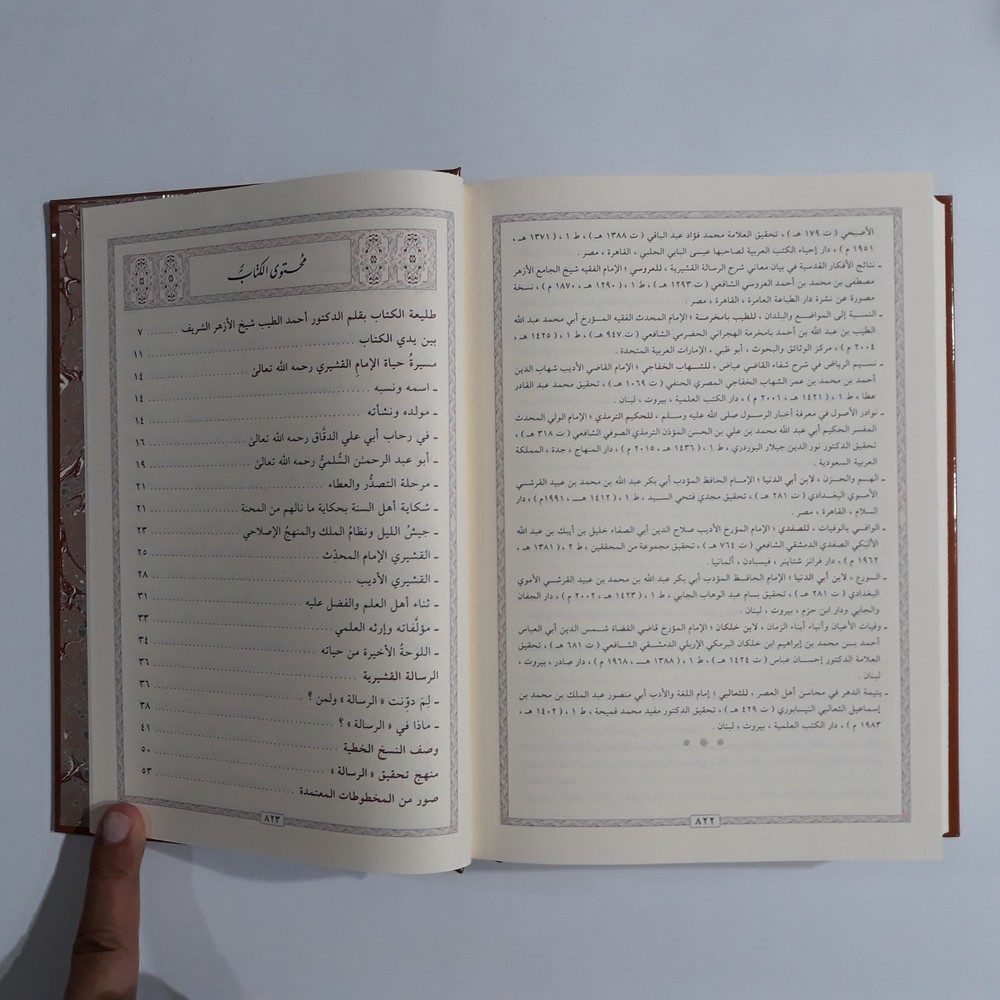 الأصبحي ( ت ١٧٩ هـ ) ، تحقيق العلامة محمد فؤاد عبد الباقي ( ت ١٣٨٨ هـ ) ، ط ١ ، ( ١٣٧١ هـ ،
١٩٥١ م ) ، دار إحياء الكتب العربية لصاحبها عيسى البابي الحلبي ، القاهرة ، مصر .
ـ نتائج الأفكار القدسية في بيان معاني شرح الرسالة القشيرية ، للعروسي ؛ الإمام الفقيه شيخ الجامع الأزهر
مصطفى بن محمد بن أحمد العروسي الشافعي ( ت ١٢٩٣ هـ ) ، ط ١ ، ( ١٢٩٠ هـ ، ١٨٧٠ م ) ، نسخة
مصورة عن نشرة دار الطباعة العامرة ، القاهرة ، مصر .
ـ النسبة إلى المواضع والبلدان ، للطيب بامخرمة ؛ الإمام المحدث الفقيه المؤرخ أبي محمد عبد الله
الطيب بن عبد الله بن أحمد بامخرمة الهجراني الحضرمي الشافعي ( ت ٩٤٧ هـ ) ، ط ١ ، ( ١٤٢٥ هـ ،
٢٠٠٤ م ) ، مركز الوثائق والبحوث ، أبو ظبي ، الإمارات العربية المتحدة .
ـ نسيم الرياض في شرح شفاء القاضي عياض ، للشهاب الخفاجي ؛ الإمام القاضي الأديب شهاب الدين
أحمد بن محمد بن عمر الشهاب الخفاجي المصري الحنفي ( ت ١٠٦٩ هـ ) ، تحقيق محمد عبد القادر
عطا ، ط ١ ، ( ١٤٢١ هـ ، ٢٠٠١ م ) ، دار الكتب العلمية ، بيروت ، لبنان .
ـ نوادر الأصول في معرفة أخبار الرسول صلى الله عليه وسلم ، للحكيم الترمذي ؛ الإمام الولي المحدث
المفسر الحكيم أبي عبد الله محمد بن علي بن الحسن المؤذن الترمذي الصوفي الشافعي ( ت ٣١٨ هـ ) ،
تحقيق الدكتور نور الدين جيلار البوردري ، ط ١ ، ( ١٤٣٦ هـ ، ٢٠١٥ م ) ، دار المنهاج ، جدة ، المملكة
العربية السعودية .
ـ الهم والحزن ، لابن أبي الدنيا ؛ الإمام الحافظ المؤدب أبي بكر عبد الله بن محمد بن عبيد القرشي
الأموي البغدادي ( ت ٢٨١ هـ ) ، تحقيق مجدي فتحي السيد ، ط ١ ، ( ١٤١٢ هـ ، ١٩٩١م ) ، دار
السلام ، القاهرة ، مصر .
ـ الوافي بالوفيات ، للصفدي ؛ الإمام المؤرخ الأديب صلاح الدين أبي الصفاء خليل بن أيبك بن عبد الله
الألبكي الصفدي الدمشقي الشافعي ( ت ٧٦٤ هـ ) ، تحقيق مجموعة من المحققين ، ط ٢ ، ( ١٣٨١ هـ ،
١٩٦٢ م ) ، دار فرانز شتاينر ، فيسبادن ، ألمانيا .
ـ الورع ، لابن أبي الدنيا ؛ الإمام الحافظ المؤدب أبي بكر عبد الله بن محمد بن عبيد القرشي الأموي
البغدادي ( ت ٢٨١ هـ ) ، تحقيق بسام عبد الوهاب الجابي ، ط ١ ، ( ١٤٢٣ هـ ، ٢٠٠٢ م ) ، دار الجفان
والجابي ودار ابن حزم ، بيروت ، لبنان .
ـ وفيات الأعيان وأنباء أبناء الزمان ، لابن خلكان ؛ الإمام المؤرخ قاضي القضاة شمس الدين أبي العباس
أحمد بن محمد بن إبراهيم ابن خلكان البرمكي الإربلي الدمشقي الشافعي ( ت ٦٨١ هـ ) ، تحقيق
العلامة الدكتور إحسان عباس ( ت ١٤٢٤ هـ ) ، ط ١ ، ( ١٣٨٨ هـ ، ١٩٦٨ م ) ، دار صادر ، بيروت ،
لبنان .
ـ يتيمة الدهر في محاسن أهل العصر ، للثعالبي ؛ إمام اللغة والأدب أبي منصور عبد الملك بن محمد بن
إسماعيل الثعالبي النيسابوري ( ت ٤٢٩ هـ ) ، تحقيق الدكتور مفيد محمد قميحة ، ط ١ ، ( ١٤٠٢ هـ ،
١٩٨٣ م ) ، دار الكتب العلمية ، بيروت ، لبنان .
٨٢٢
محتوى الكتاب
طليعة الكتاب بقلم الدكتور أحمد الطيب شيخ الأزهر الشريف ........ ٧
بين يدي الكتاب ........ ١١
مسيرةُ حياة الإمامِ القشيري رحمه الله تعالىٰ ........ ١٤
ـ اسمه ونسبه ........ ١٤
ـ مولده ونشأته ........ ١٤
ـ في رحاب أبي علي الدقَّاق رحمه الله تعالىٰ ........ ١٦
ـ أبو عبد الرحمٰن السُّلميُّ رحمه الله تعالىٰ ........ ١٩
ـ مرحلة التصدُّر والعطاء ........ ٢١
ـ شكاية أهل السنة بحكاية ما نالهم من المحنة ........ ٢١
ـ جيشُ الليل ونظامُ الملك والمنهجُ الإصلاحي ........ ٢٣
ـ القشيري الإمام المحدِّث ........ ٢٥
ـ القشيري الأديب ........ ٢٨
ـ ثناء أهل العلم والفضل عليه ........ ٣١
ـ مؤلَّفاته وإرثه العلمي ........ ٣٣
ـ اللوحةُ الأخيرة من حياته ........ ٣٤
الرسالة القشيرية ........ ٣٦
ـ لِمَ دوّنت « الرسالة » ولمن ؟ ........ ٣٦
ـ ماذا في « الرسالة » ؟ ........ ٣٨
وصف النسخ الخطية ........ ٤١
منهج تحقيق « الرسالة » ........ ٥٠
صور من المخطوطات المعتمدة ........ ٥٣
٨٢٣